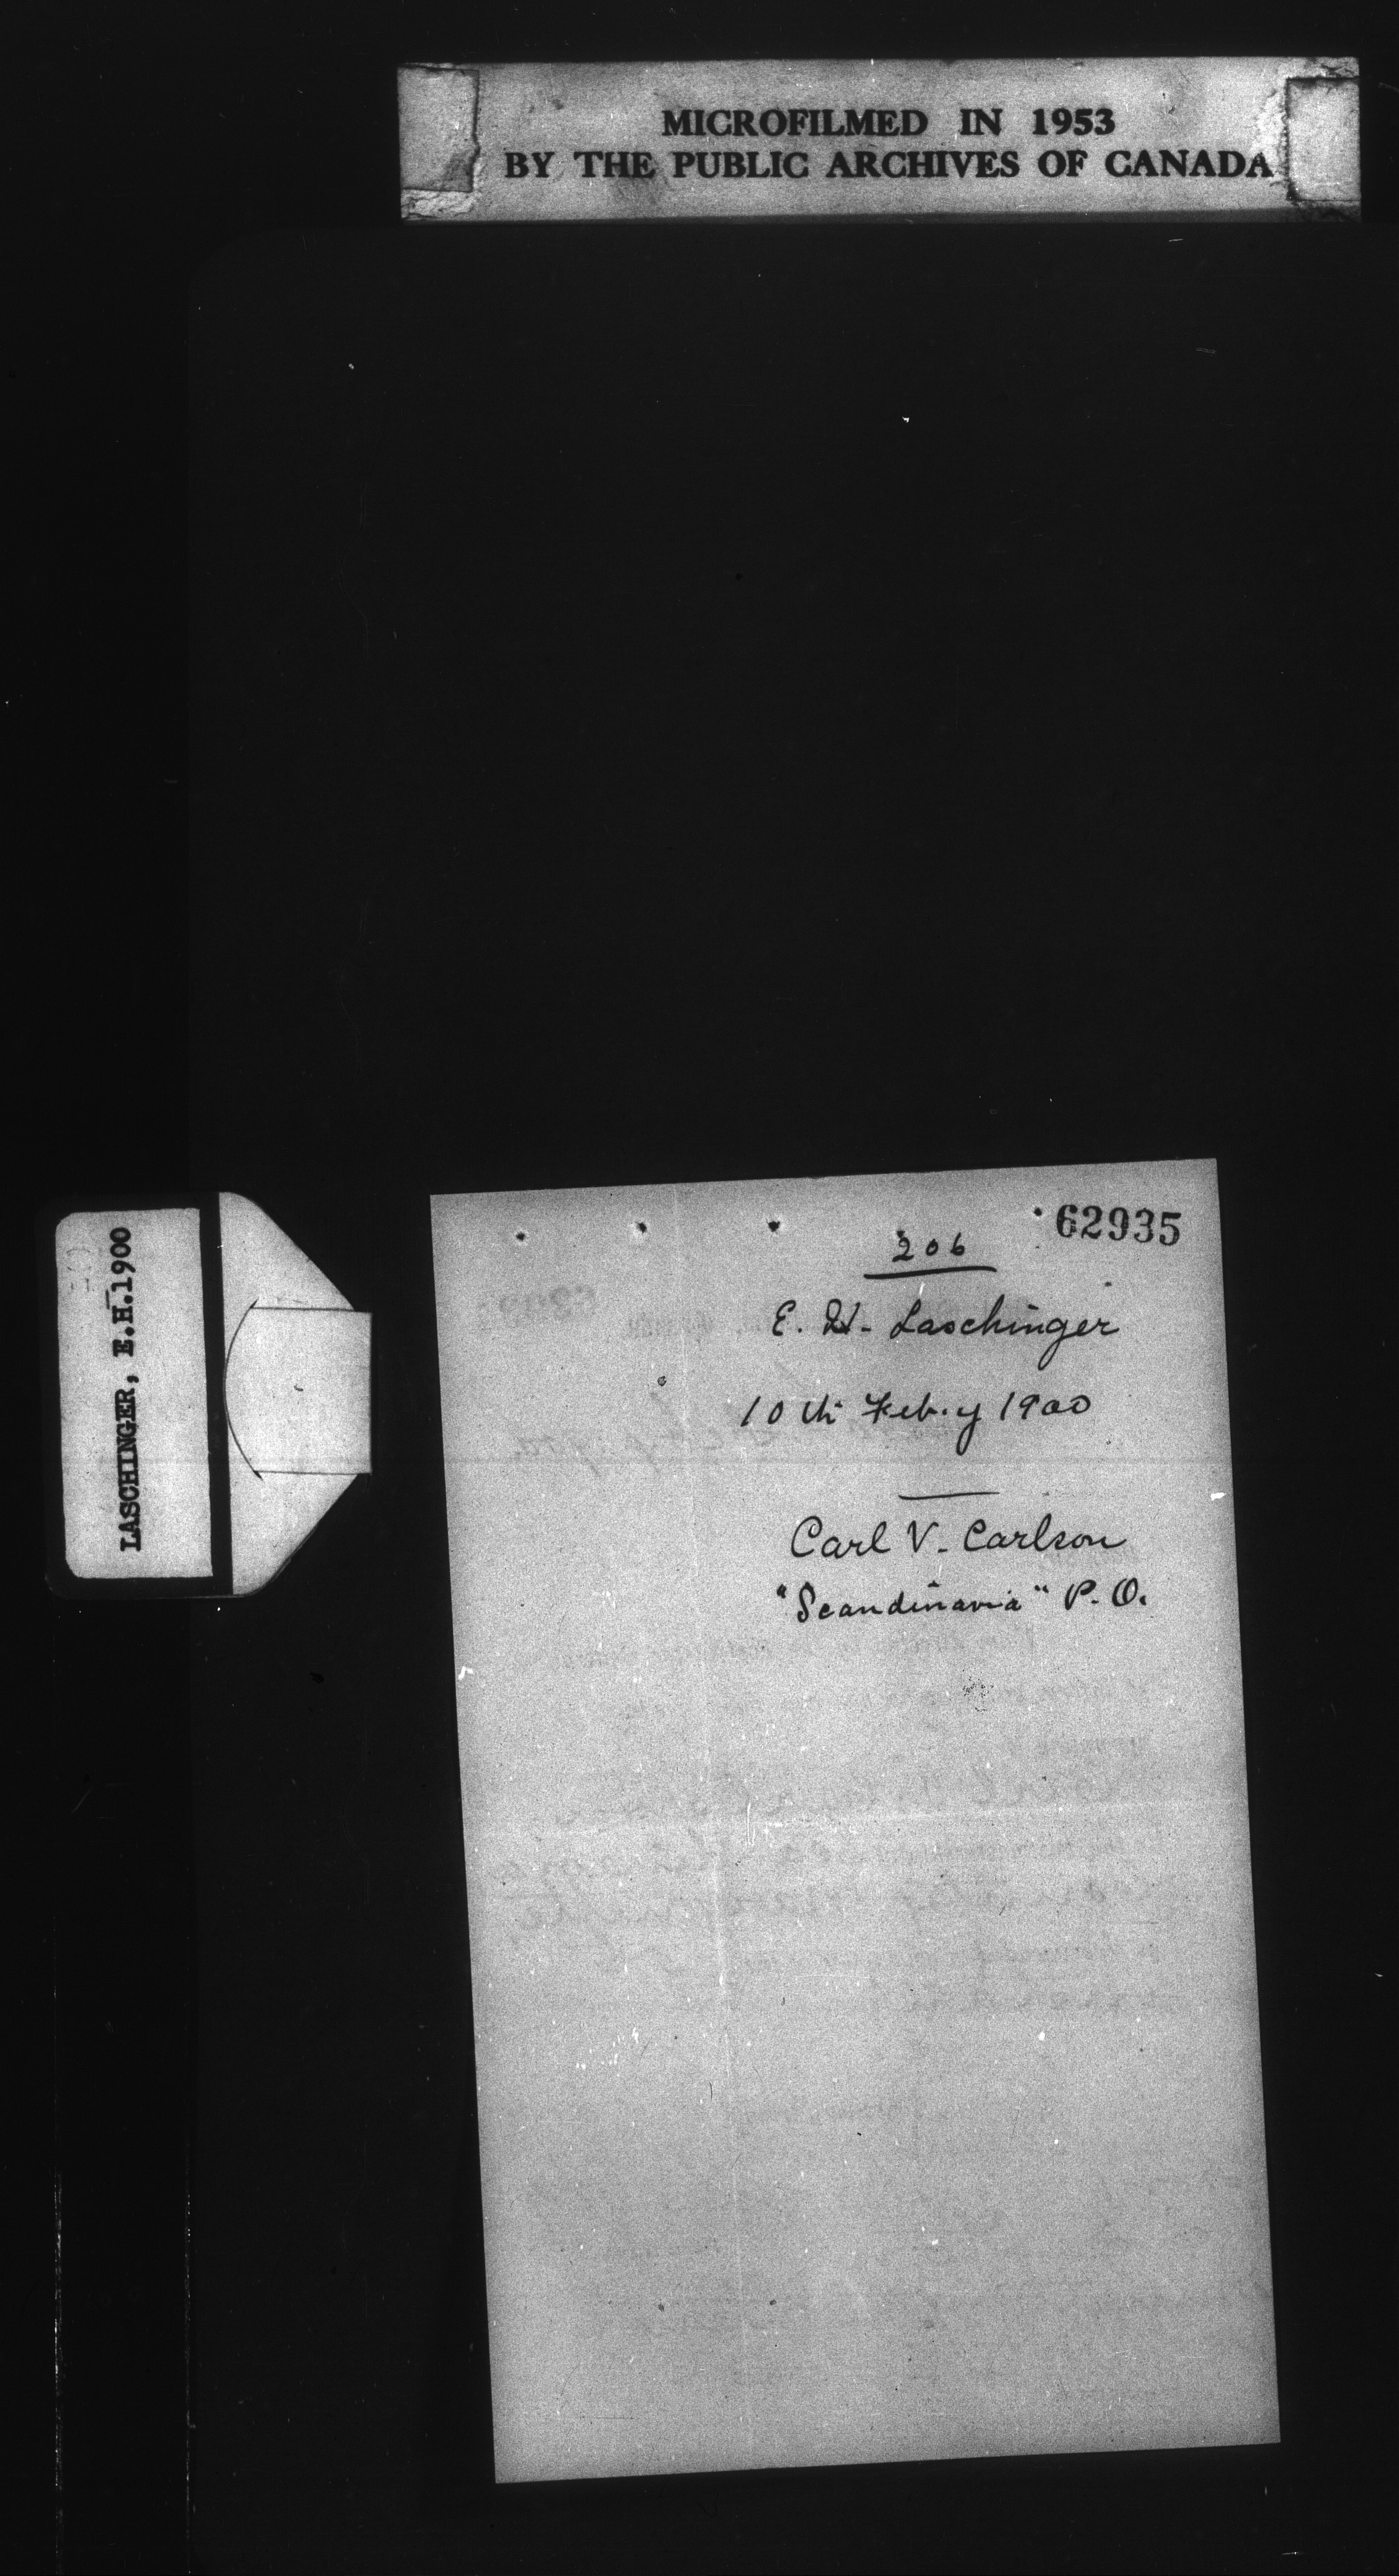 MICROFILMED IN 1953
BY THE PUBLIC ARCHIVES OF CANADA
LASCHINGER, E.H.1900
62935
206
E. H. Laschinger
10th Feb.y 1900
Carl V. Carlson
"Scandinavia" P.O.